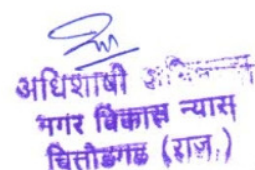 अधिशाषी
नगर विकास न्यास
चित्तौडगढ (राज.)